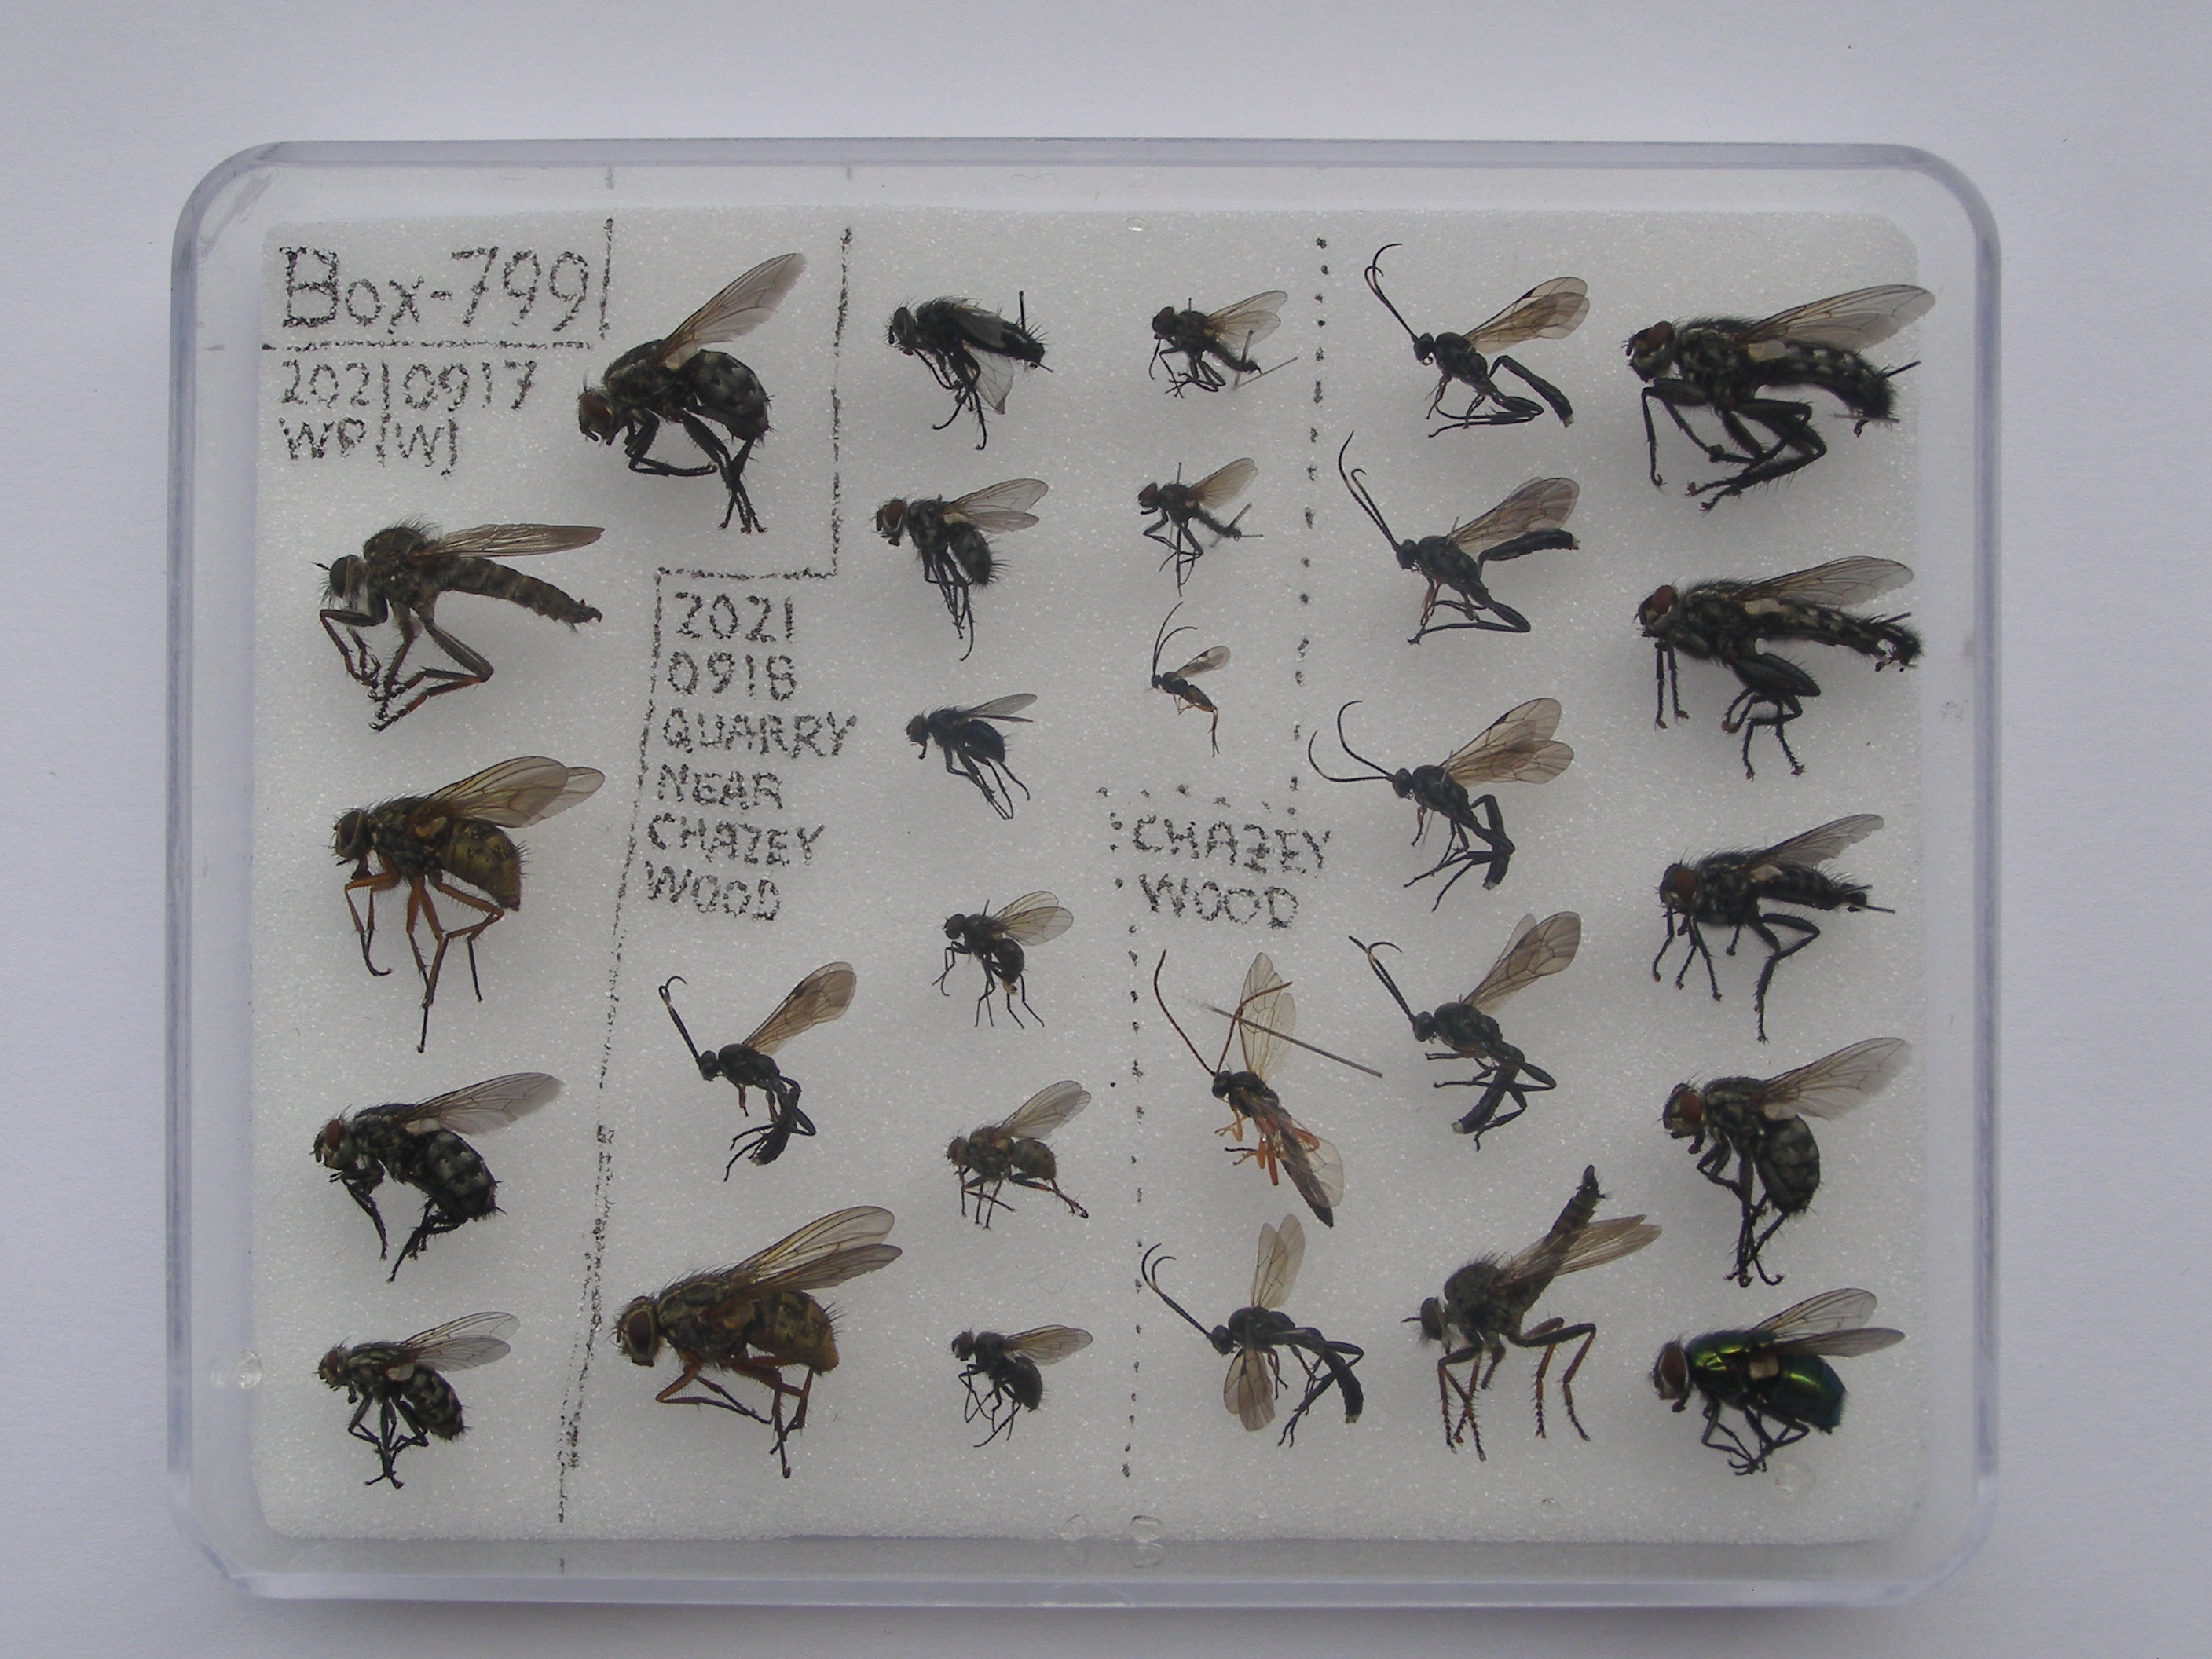 Box-799
20210917
WP(W)
2021
0918
QUARRY
NEAR
CHAZEY
WOOD
CHAZEY
WOOD